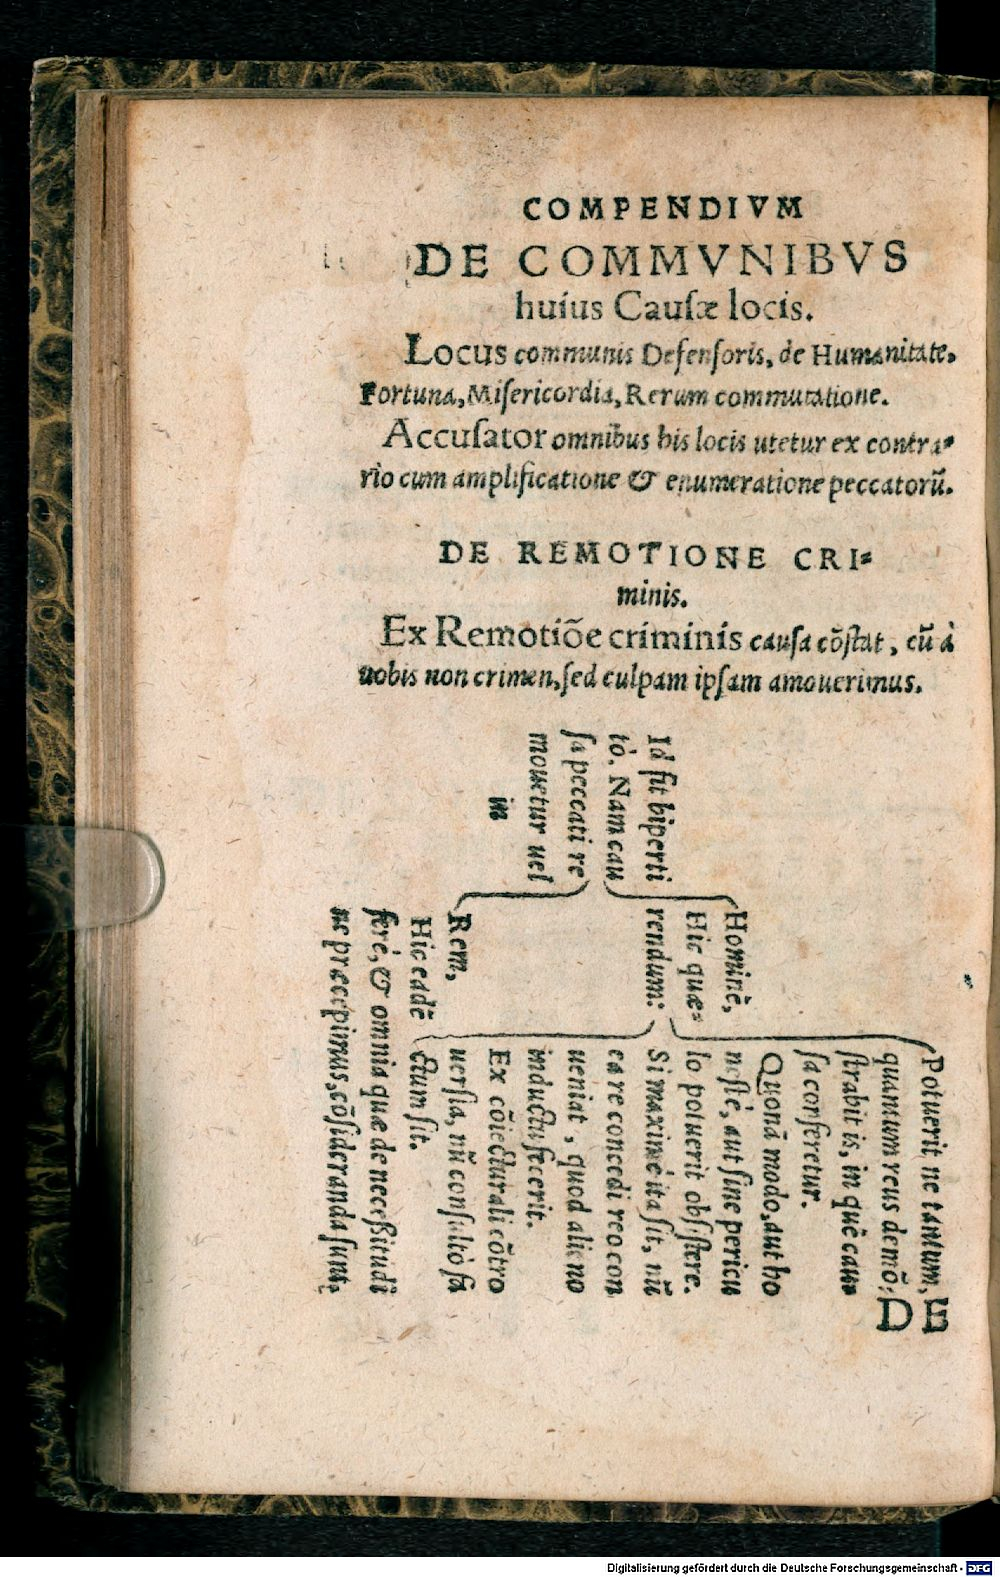 COMPENDIVM
DE COMMVNIBVS
huius Cauſæ locis.
Locus communis Defenſoris, de Humanitate,
Fortuna, Miſericordia, Rerum commutatione.
Accuſator omnibus his locis utetur ex contra⸗
rio cum amplificatione & enumeratione peccatorũ.
DE REMOTIONE CRI⸗
minis.
Ex Remotiõe criminis cauſa cõſtat, cũ à
nobis non crimen, ſed culpam ipſam amouerimus.
Id fit biperti
tò. Nam cau
ſa peccati re
mouetur uel
in
Hominẽ,
Hic quæ⸗
rendum:
Potuerit ne tantum,
quantum reus demõ⸗
ſtrabit is, in quẽ cau⸗
ſa conferetur.
Quonã modo, aut ho
neſtè, aut ſine pericu
lo potuerit obſiſtere.
Si maximè ita ſit, nũ
ea re concedi reo con
ueniat, quod alieno
inductu fecerit.
Ex cõiecturali cõtro
uerſia, nũ conſultò fa
ctum ſit.
Rem,
Hic eadẽ
ferè, & omnia quæ de neceßitudi
ne præcepimus, cõſideranda ſunt.
DE
Digitalisierung gefördert durch die Deutsche Forschungsgemeinschaft - DFG